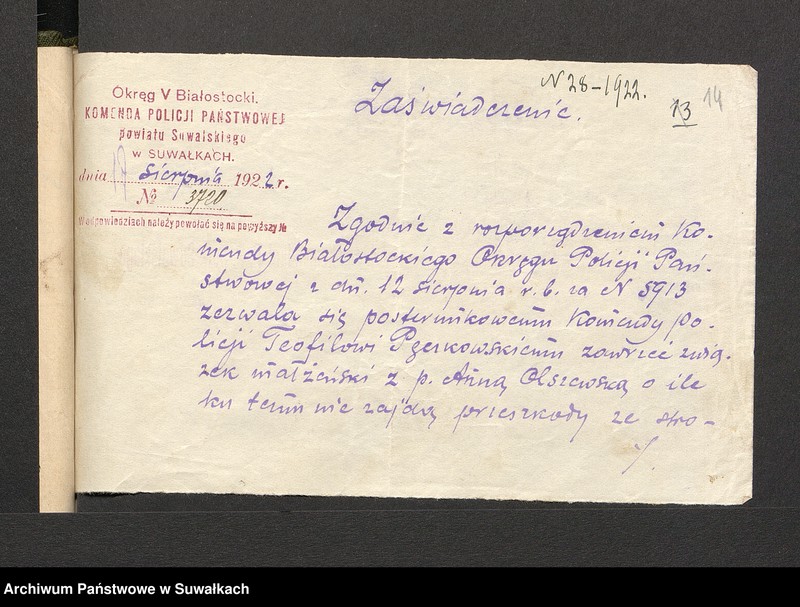 N 28-1922.
13 14
Okręg V Białostocki.
KOMENDA POLICJI PAŃSTWOWEJ
powiatu Suwalskiego
w SUWAŁKACH.
dnia 17 sierpnia 1922 r.
№ 3720
W odpowiedziach należy powołać się na powyższy №
Zaświadczenie.
Zgodnie z rozporządzeniem Ko-
mendy Białostockiego Okręgu Policji Pań-
stwowej z dn. 12 sierpnia r. b. za N 5913
zezwala się posterunkowemu Komendy Po-
licji Teofilowi Pżerkowskiemu zawrzeć zwią-
zek małżeński z p. Anną Olszewską o ile
ku temu nie zajdą przeszkody ze stro-
./.
Archiwum Państwowe w Suwałkach